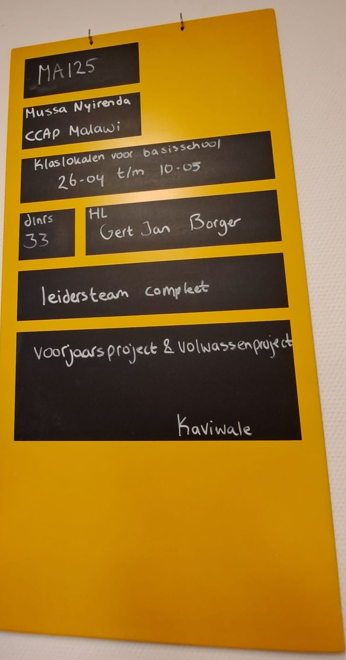 MA125
Mussa Nyirenda
CCAP Malawi
Klaslokalen voor basisschool
26-04 t/m 10-05
dlnrs
33
HL
Gert Jan Borger
leidersteam compleet
voorjaarsproject & volwassenproject
Kaviwale